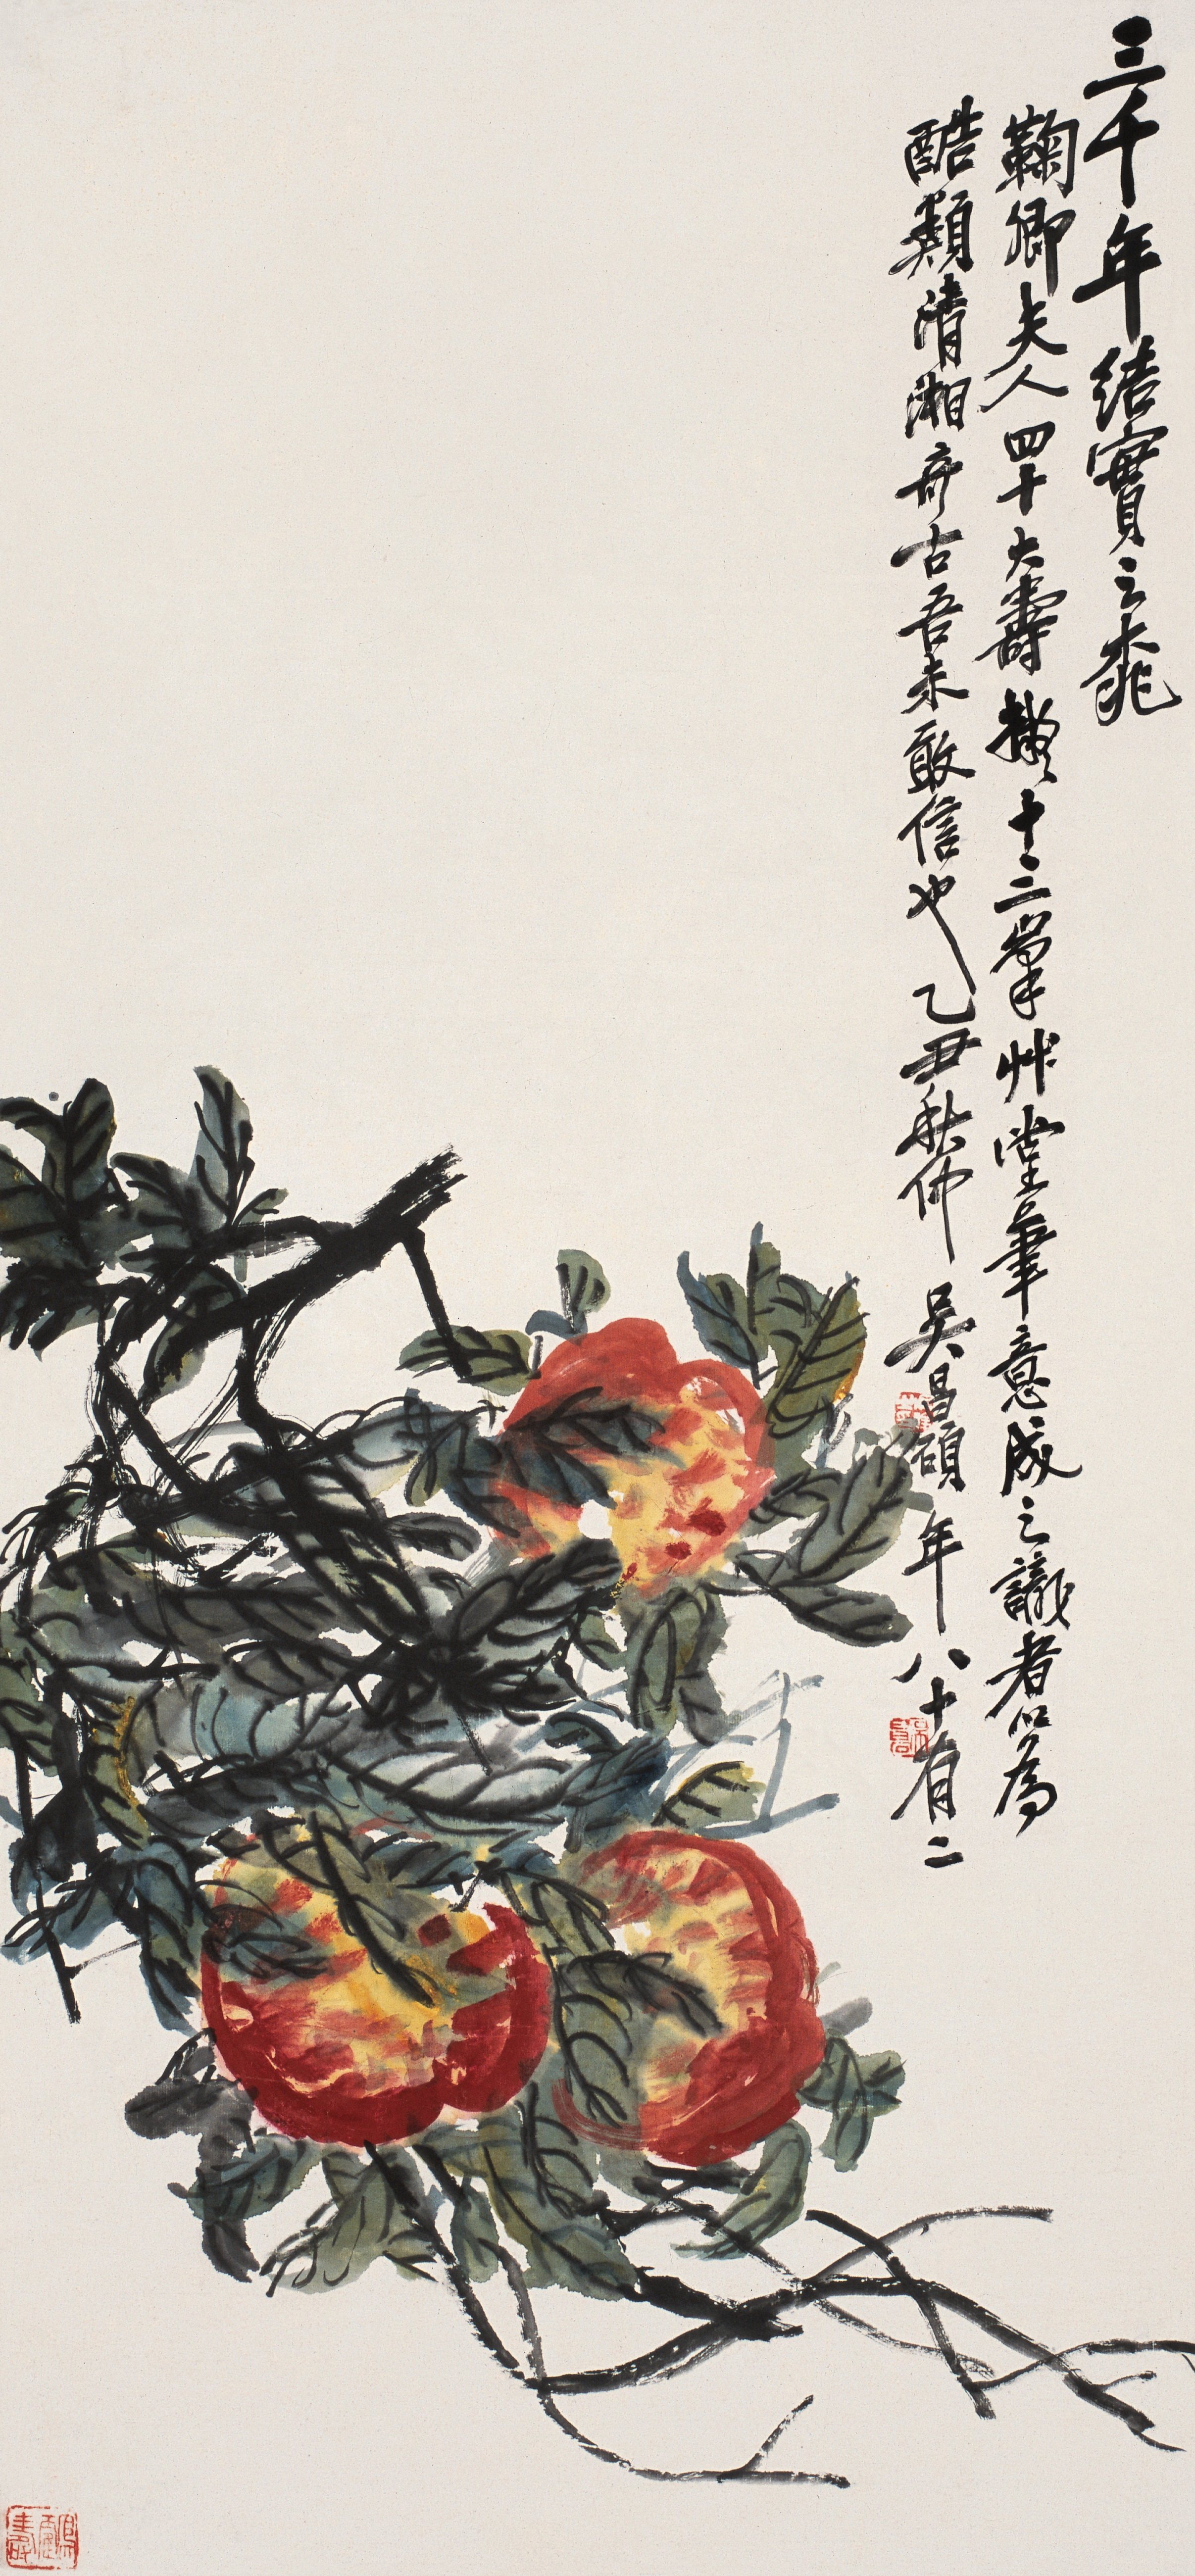 三千年結實之桃
鞠卿夫人四十大壽擬十二峯艸堂筆意成之識者以為
酷類清湘奇古吾未敢信也乙丑秋仲吳昌碩年八十有二